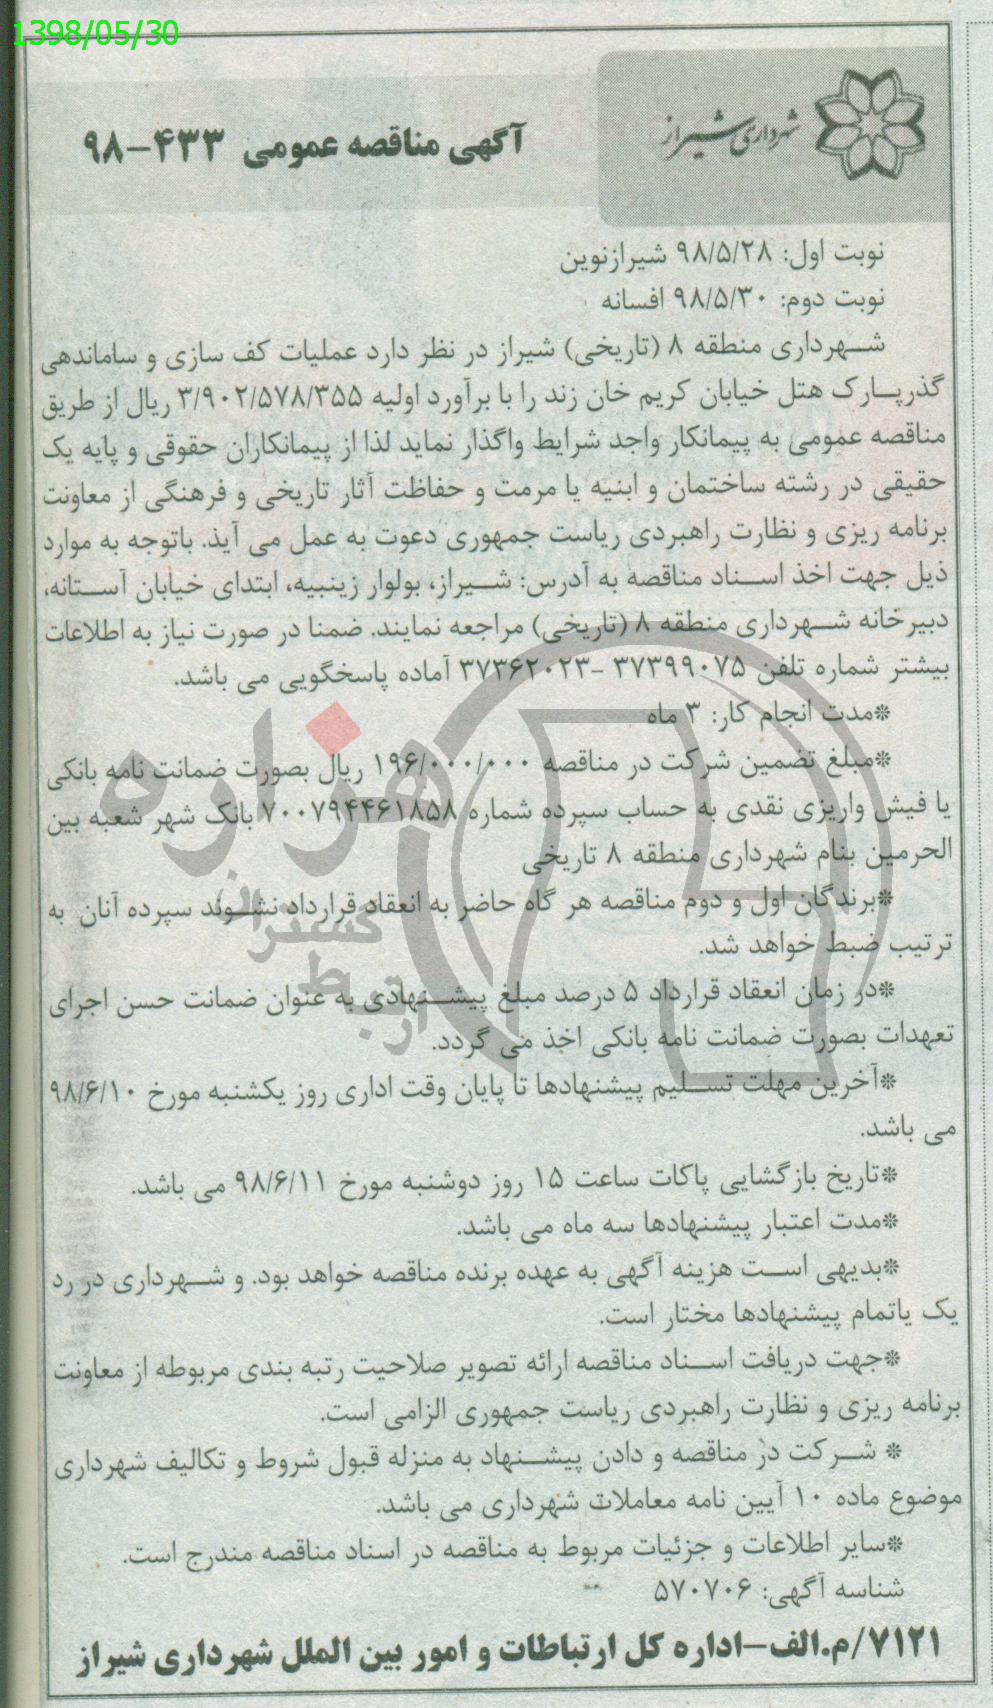 1398/05/30
شهرداری شیراز
آگهی مناقصه عمومی ۴۳۳-۹۸
نوبت اول: ۹۸/۵/۲۸ شیرازنوین
نوبت دوم: ۹۸/۵/۳۰ افسانه
شهرداری منطقه ۸ (تاریخی) شیراز در نظر دارد عملیات کف سازی و ساماندهی
گذرپارک هتل خیابان کریم خان زند را با برآورد اولیه ۳/۹۰۲/۵۷۸/۳۵۵ ریال از طریق
مناقصه عمومی به پیمانکار واجد شرایط واگذار نماید لذا از پیمانکاران حقوقی و پایه یک
حقیقی در رشته ساختمان و ابنیه یا مرمت و حفاظت آثار تاریخی و فرهنگی از معاونت
برنامه ریزی و نظارت راهبردی ریاست جمهوری دعوت به عمل می آیذ. باتوجه به موارد
ذیل جهت اخذ اسناد مناقصه به آدرس: شیراز، بولوار زینبیه، ابتدای خیابان آستانه،
دبیرخانه شهرداری منطقه ۸ (تاریخی) مراجعه نمایند. ضمنا در صورت نیاز به اطلاعات
بیشتر شماره تلفن ۳۷۳۹۹۰۷۵ -۳۷۳۶۲۰۲۳ آماده پاسخگویی می باشد.
*مدت انجام کار: ۳ ماه
*مبلغ تضمین شرکت در مناقصه ۱۹۶/۰۰۰/۰۰۰ ریال بصورت ضمانت نامه بانکی
یا فیش واریزی نقدی به حساب سپرده شماره ۷۰۰۷۹۴۴۶۱۸۵۸ بانک شهر شعبه بین
الحرمین بنام شهرداری منطقه ۸ تاریخی
*برندگان اول و دوم مناقصه هر گاه حاضر به انعقاد قرارداد نشوند سپرده آنان به
ترتیب ضبط خواهد شد.
*در زمان انعقاد قرارداد ۵ درصد مبلغ پیشنهادی به عنوان ضمانت حسن اجرای
تعهدات بصورت ضمانت نامه بانکی اخذ می گردد.
*آخرین مهلت تسلیم پیشنهادها تا پایان وقت اداری روز یکشنبه مورخ ۹۸/۶/۱۰
می باشد.
*تاریخ بازگشایی پاکات ساعت ۱۵ روز دوشنبه مورخ ۹۸/۶/۱۱ می باشد.
*مدت اعتبار پیشنهادها سه ماه می باشد.
*بدیهی است هزینه آگهی به عهده برنده مناقصه خواهد بود. و شهرداری در رد
یک یاتمام پیشنهادها مختار است.
*جهت دریافت اسناد مناقصه ارائه تصویر صلاحیت رتبه بندی مربوطه از معاونت
برنامه ریزی و نظارت راهبردی ریاست جمهوری الزامی است.
* شرکت در مناقصه و دادن پیشنهاد به منزله قبول شروط و تکالیف شهرداری
موضوع ماده ۱۰ آیین نامه معاملات شهرداری می باشد.
*سایر اطلاعات و جزئیات مربوط به مناقصه در اسناد مناقصه مندرج است.
شناسه آگهی: ۵۷۰۷۰۶
۷۱۲۱/م.الف-اداره کل ارتباطات و امور بین الملل شهرداری شیراز
هزاره
گستران
ارتباط